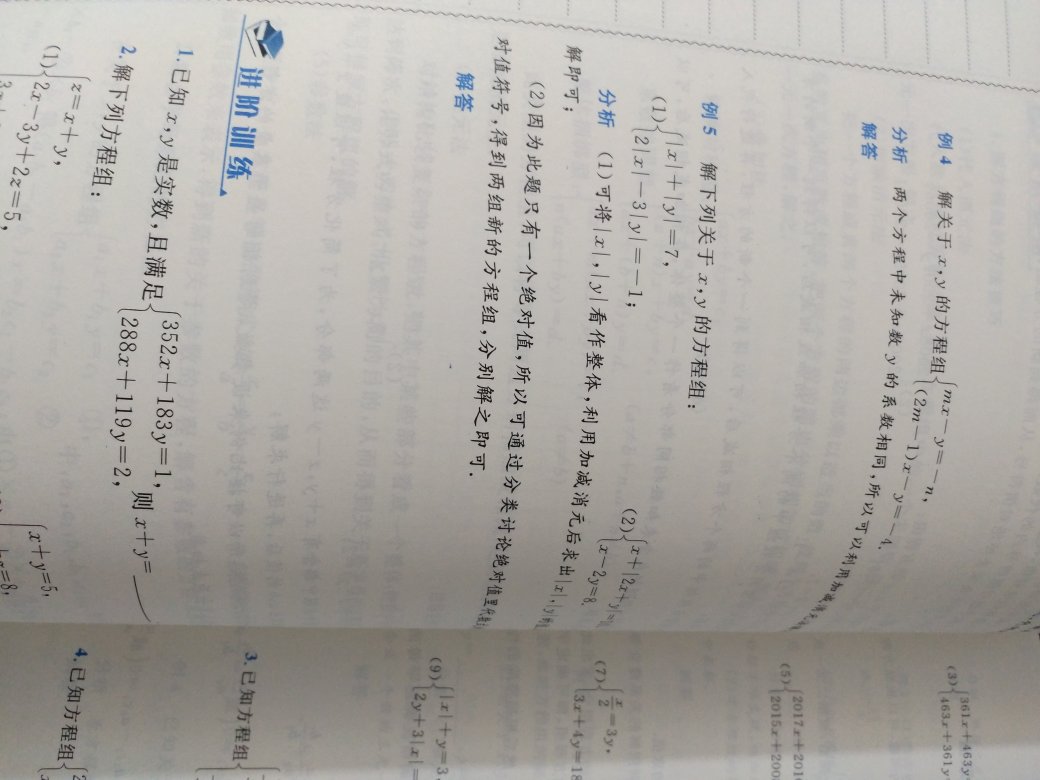 例 4 解关于 x,y 的方程组{mx-y=-n,
(2m-1)x-y=-4.
分析 两个方程中未知数 y 的系数相同,所以可以利用加减消元
解答
例 5 解下列关于 x,y 的方程组:
(1){|x|+|y|=7,
2|x|-3|y|=-1;
(2){x+|2x+y|=
x-2y=8.
分析 (1)可将|x|,|y|看作整体,利用加减消元后求出|x|,|y|
解即可;
(2)因为此题只有一个绝对值,所以可通过分类讨论绝对值里
对值符号,得到两组新的方程组,分别解之即可.
解答
进阶训练
1. 已知 x,y 是实数,且满足{352x+183y=1,
288x+119y=2,
则 x+y=
2. 解下列方程组:
(1){z=x+y,
2x-3y+2z=5,
{x+y=5,
(3){361x+463y
463x+361y
(5){2017x+201
2015x+200
(7){x/2=3y,
3x+4y=18
(9){|x|+y=3,
2y+3|x|=
3. 已知方程组{
4. 已知方程组{